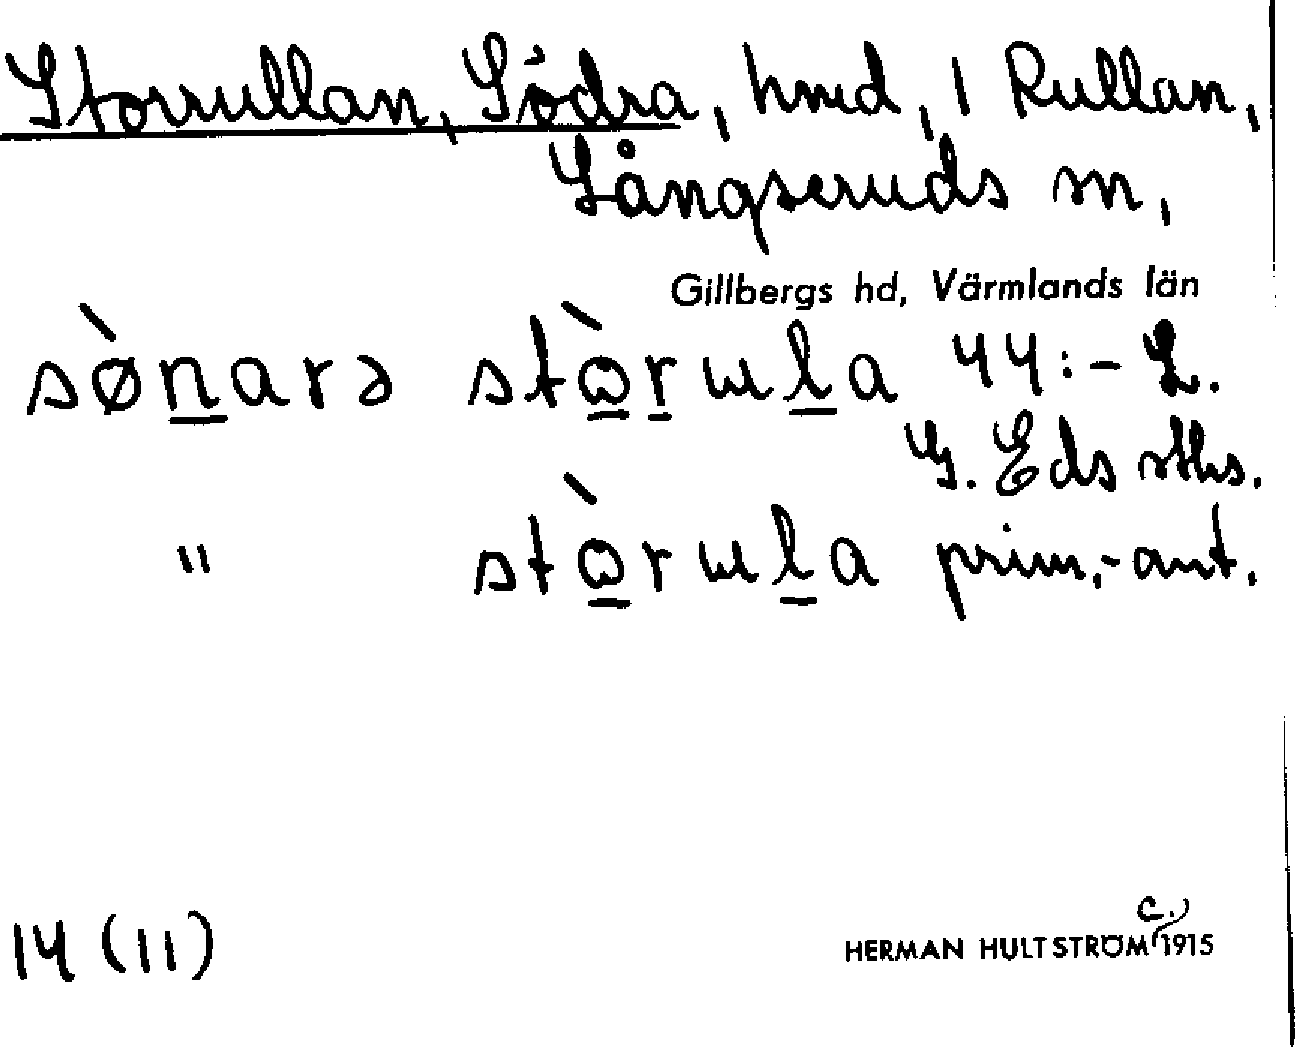 Storrullan, Södra, hmd, 1 Rullan,
Långseruds sn,
Gillbergs hd, Värmlands län
sø̀n̲arə stὼ̲r̲ɯl̲a 44:- L.
G. Eds sths.
" stὼ̲rɯl̲a prim.-ant.
14 (11)
HERMAN HULTSTRÖM (c.) 1915